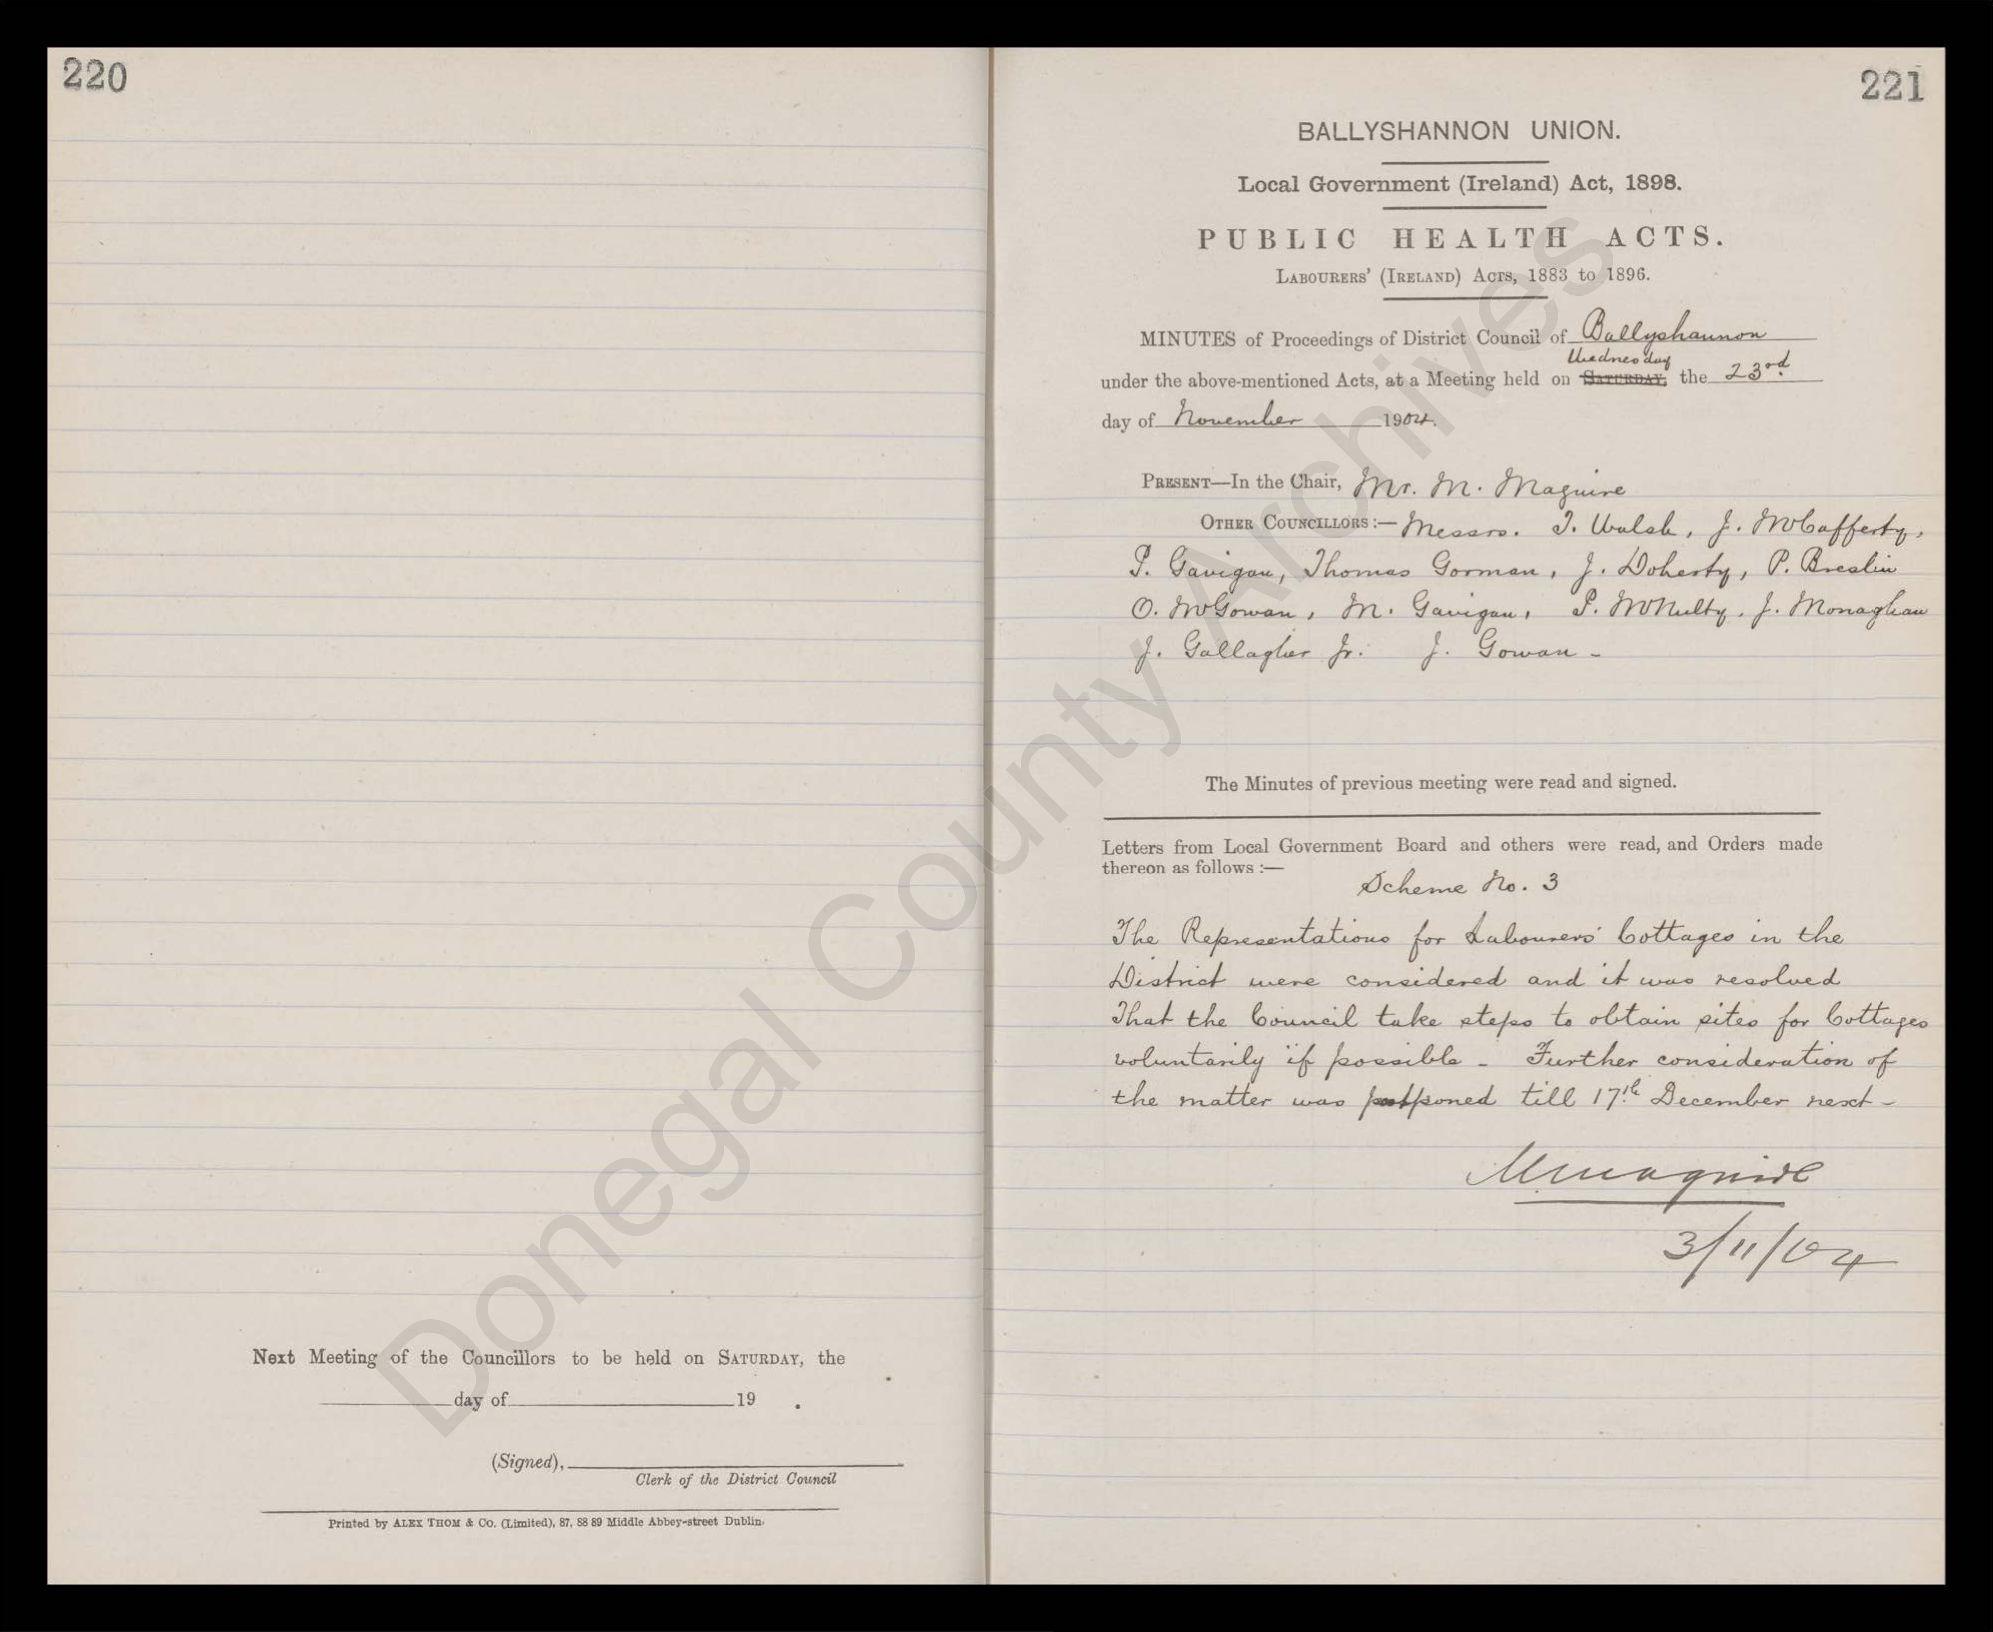 220
Next Meeting of the Councillors to be held on SATURDAY, the
day of 19 .
(Signed),
Clerk of the District Council
Printed by ALEX THOM & Co. (Limited), 87, 88 89 Middle Abbey-street Dublin.
221
BALLYSHANNON UNION.
Local Government (Ireland) Act, 1898.
PUBLIC HEALTH ACTS.
LABOURERS' (IRELAND) ACTS, 1883 to 1896.
MINUTES of Proceedings of District Council of Ballyshannon
Wednesday
under the above-mentioned Acts, at a Meeting held on SATURDAY, the 23rd
day of November 1904.
PRESENT—In the Chair, Mr. M. Maguire
OTHER COUNCILLORS:— Messrs. T. Walsh, J. McCafferty,
P. Gavigan, Thomas Gorman, J. Doherty, P. Breslin
O. McGowan, M. Gavigan, P. McNulty, J. Monaghan
J. Gallagher Jr. J. Gowan -
The Minutes of previous meeting were read and signed.
Letters from Local Government Board and others were read, and Orders made
thereon as follows :—
Scheme No. 3
The Representations for Labourers' Cottages in the
District were considered and it was resolved
That the Council take steps to obtain sites for Cottages
voluntarily if possible - Further consideration of
the matter was postponed till 17th December next -
M Maguire
3/11/04
Donegal County Archives